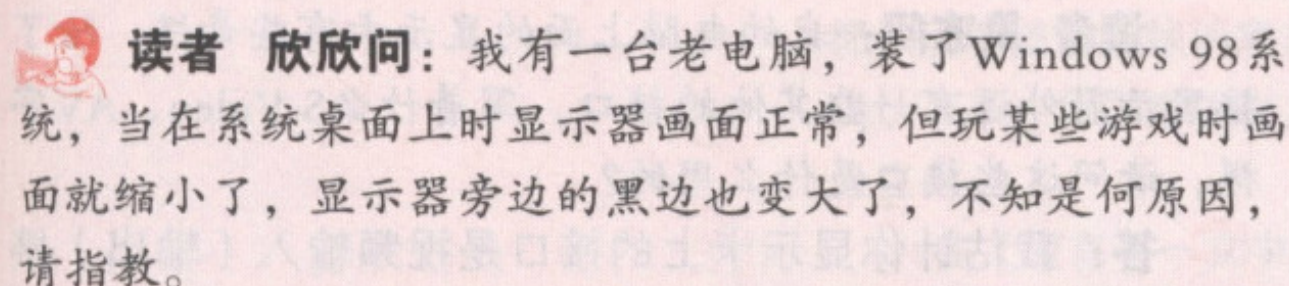 读者 欣欣问：我有一台老电脑，装了Windows 98系
统，当在系统桌面上时显示器画面正常，但玩某些游戏时画
面就缩小了，显示器旁边的黑边也变大了，不知是何原因，
请指教。